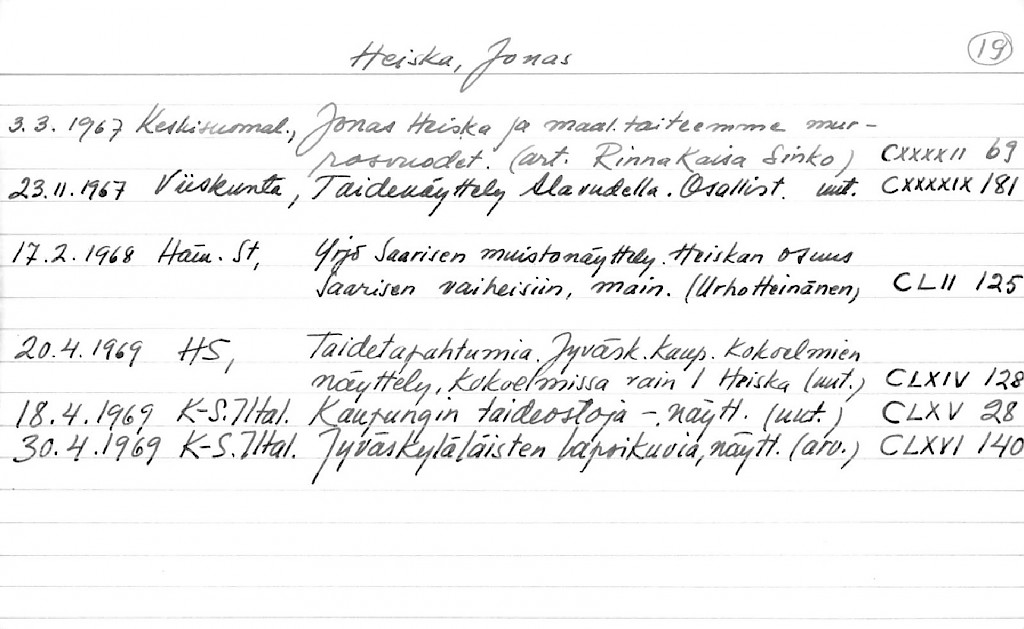 Heiska, Jonas 19
3.3.1967 Keskisuomal., Jonas Heiska ja maal.taiteemme mur-
rosvuodet. (art. Rinna Kaisa Sinko) CXXXXII 69
23.11.1967 Viiskunta, Taidenäyttely Alavudella. Osallist. uut. CXXXXIX 181
17.2.1968 Häm. St, Yrjö Saarisen muistonäyttely. Heiskan osuus
Saarisen vaiheisiin, main. (Urho Heinänen) CLII 125
20.4.1969 HS, Taidetapahtumia. Jyväsk. kaup. kokoelmien
näyttely, kokoelmissa vain 1 Heiska (uut.) CLXIV 128
18.4.1969 K-S. Iltal. Kaupungin taideostoja -, näytt. (uut.) CLXV 28
30.4.1969 K-S. Iltal. Jyväskyläläisten lapsikuvia, näytt. (arv.) CLXVI 140